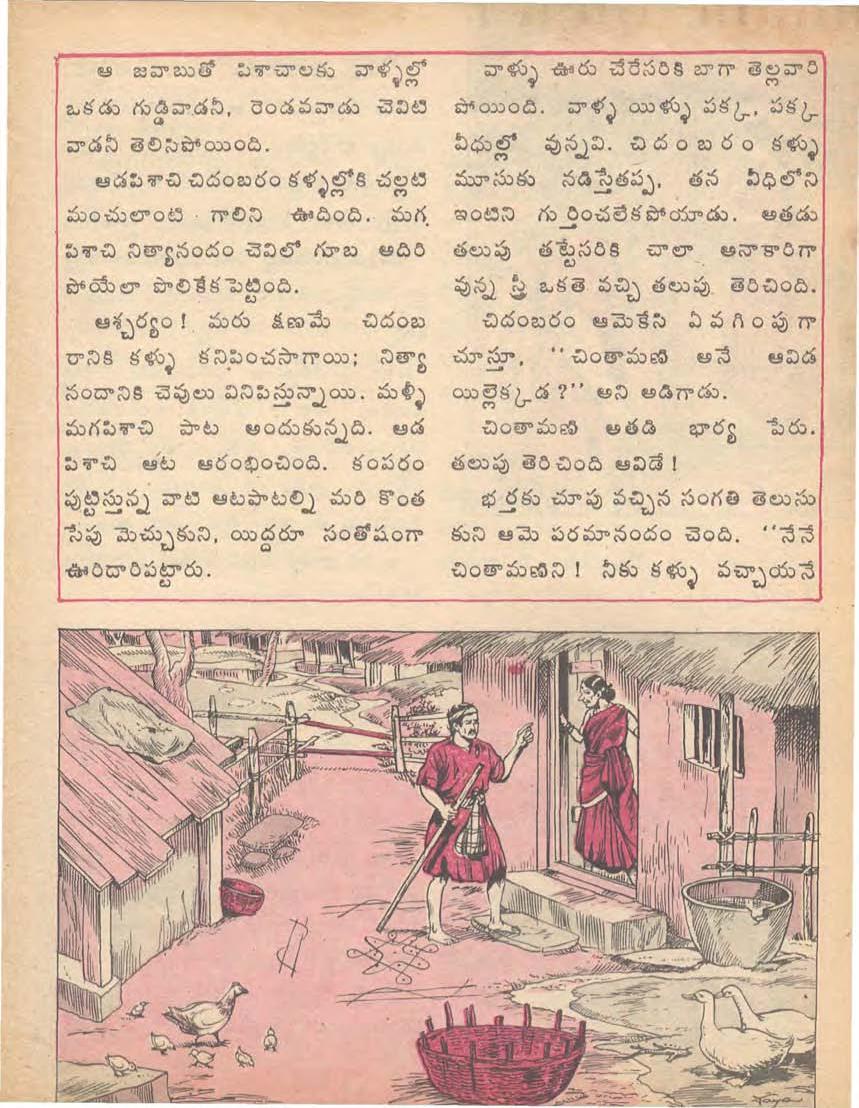 ఆ జవాబుతో పిశాచాలకు వాళ్ళల్లో
ఒకడు గుడ్డివాడనీ, రెండవవాడు చెవిటి
వాడనీ తెలిసిపోయింది.
ఆడపిశాచి చిదంబరం కళ్ళల్లోకి చల్లటి
మంచులాంటి గాలిని ఊదింది. మగ
పిశాచి నిత్యానందం చెవిలో గూబ అదిరి
పోయేలా పొలికేక పెట్టింది.
ఆశ్చర్యం! మరు క్షణమే చిదంబ
రానికి కళ్ళు కనిపించసాగాయి; నిత్యా
నందానికి చెవులు వినిపిస్తున్నాయి. మళ్ళీ
మగపిశాచి పాట అందుకున్నది. ఆడ
పిశాచి ఆట ఆరంభించింది. కంపరం
పుట్టిస్తున్న వాటి ఆటపాటల్ని మరి కొంత
సేపు మెచ్చుకుని, యిద్దరూ సంతోషంగా
ఊరిదారిపట్టారు.
వాళ్ళు ఊరు చేరేసరికి బాగా తెల్లవారి
పోయింది. వాళ్ళ యిళ్ళు పక్క, పక్క
వీధుల్లో వున్నవి. చిదంబరం కళ్ళు
మూసుకు నడిస్తేతప్ప, తన వీధిలోని
ఇంటిని గుర్తించలేకపోయాడు. అతడు
తలుపు తట్టేసరికి చాలా అనాకారిగా
వున్న స్త్రీ ఒకతె వచ్చి తలుపు తెరిచింది.
చిదంబరం ఆమెకేసి ఏవగింపుగా
చూస్తూ, ‘‘చింతామణి అనే ఆవిడ
యిల్లెక్కడ?’’ అని అడిగాడు.
చింతామణి అతడి భార్య పేరు.
తలుపు తెరిచింది ఆవిడే!
భర్తకు చూపు వచ్చిన సంగతి తెలుసు
కుని ఆమె పరమానందం చెంది. ‘‘నేనే
చింతామణిని! నీకు కళ్ళు వచ్చాయనే